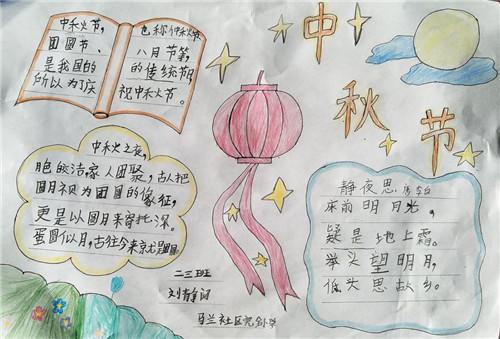 中秋节
中秋节，
团圆节、
是我国的
所以为了庆
也称仲秋节
八月节等，
的传统节
祝中秋节。
中秋之夜，
皎洁，家人团聚，古人把
圆月视为团圆的象征，
更是以圆月来寄托深。
圆似月，古往今来
静夜思 李白
床前明月光，
疑是地上霜。
举头望明月，
低头思故乡。
二三班
刘静
马兰社区完全小学